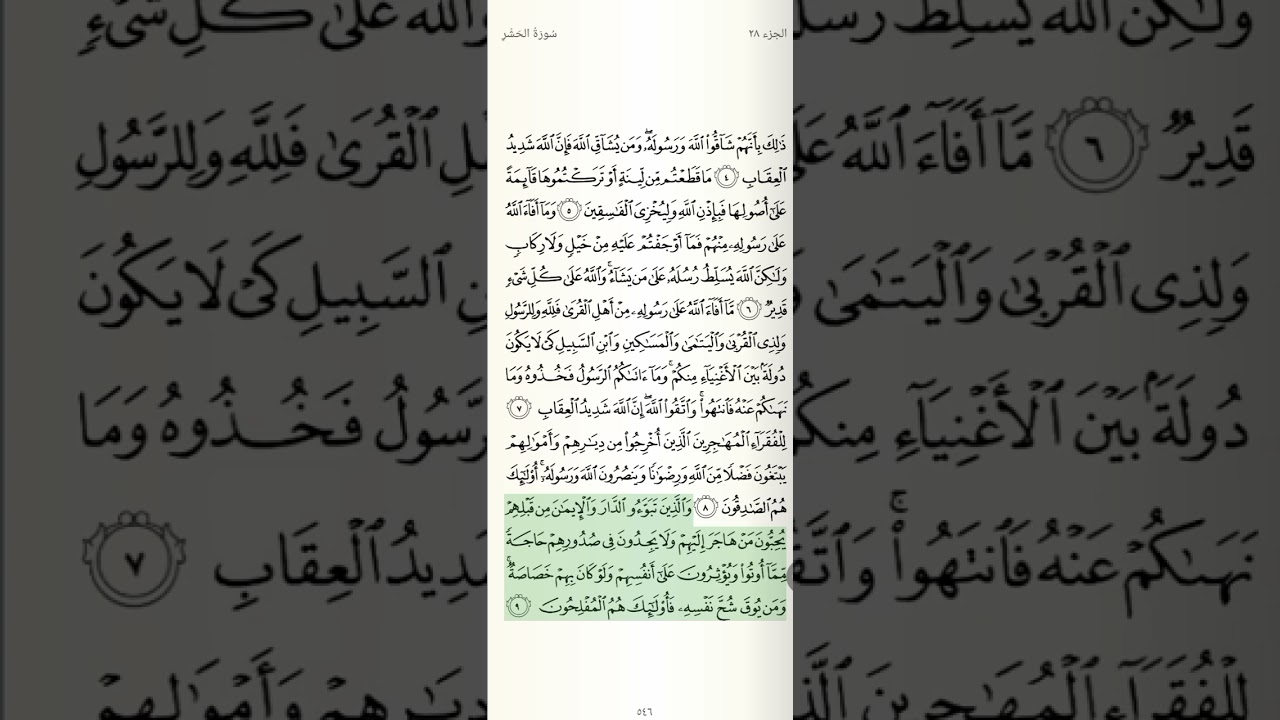 الجزء ٢٨
سُورَةُ الحَشْرِ
ذَٰلِكَ بِأَنَّهُمْ شَآقُّوا۟ ٱللَّهَ وَرَسُولَهُۥ ۖ وَمَن يُشَآقِّ ٱللَّهَ فَإِنَّ ٱللَّهَ شَدِيدُ
ٱلْعِقَابِ ٤ مَا قَطَعْتُم مِّن لِّينَةٍ أَوْ تَرَكْتُمُوهَا قَآئِمَةً
عَلَىٰٓ أُصُولِهَا فَبِإِذْنِ ٱللَّهِ وَلِيُخْزِىَ ٱلْفَٰسِقِينَ ٥ وَمَآ أَفَآءَ ٱللَّهُ
عَلَىٰ رَسُولِهِۦ مِنْهُمْ فَمَآ أَوْجَفْتُمْ عَلَيْهِ مِنْ خَيْلٍ وَلَا رِكَابٍ
وَلَٰكِنَّ ٱللَّهَ يُسَلِّطُ رُسُلَهُۥ عَلَىٰ مَن يَشَآءُ ۚ وَٱللَّهُ عَلَىٰ كُلِّ شَىْءٍ
قَدِيرٌ ٦ مَّآ أَفَآءَ ٱللَّهُ عَلَىٰ رَسُولِهِۦ مِنْ أَهْلِ ٱلْقُرَىٰ فَلِلَّهِ وَلِلرَّسُولِ
وَلِذِى ٱلْقُرْبَىٰ وَٱلْيَتَٰمَىٰ وَٱلْمَسَٰكِينِ وَٱبْنِ ٱلسَّبِيلِ كَىْ لَا يَكُونَ
دُولَةًۢ بَيْنَ ٱلْأَغْنِيَآءِ مِنكُمْ ۚ وَمَآ ءَاتَىٰكُمُ ٱلرَّسُولُ فَخُذُوهُ وَمَا
نَهَىٰكُمْ عَنْهُ فَٱنتَهُوا۟ ۚ وَٱتَّقُوا۟ ٱللَّهَ ۖ إِنَّ ٱللَّهَ شَدِيدُ ٱلْعِقَابِ ٧
لِلْفُقَرَآءِ ٱلْمُهَٰجِرِينَ ٱلَّذِينَ أُخْرِجُوا۟ مِن دِيَٰرِهِمْ وَأَمْوَٰلِهِمْ
يَبْتَغُونَ فَضْلًا مِّنَ ٱللَّهِ وَرِضْوَٰنًا وَيَنصُرُونَ ٱللَّهَ وَرَسُولَهُۥٓ ۚ أُو۟لَٰٓئِكَ
هُمُ ٱلصَّٰدِقُونَ ٨ وَٱلَّذِينَ تَبَوَّءُو ٱلدَّارَ وَٱلْإِيمَٰنَ مِن قَبْلِهِمْ
يُحِبُّونَ مَنْ هَاجَرَ إِلَيْهِمْ وَلَا يَجِدُونَ فِى صُدُورِهِمْ حَاجَةً
مِّمَّآ أُوتُوا۟ وَيُؤْثِرُونَ عَلَىٰٓ أَنفُسِهِمْ وَلَوْ كَانَ بِهِمْ خَصَاصَةٌ ۚ
وَمَن يُوقَ شُحَّ نَفْسِهِۦ فَأُو۟لَٰٓئِكَ هُمُ ٱلْمُفْلِحُونَ ٩
٥٤٦